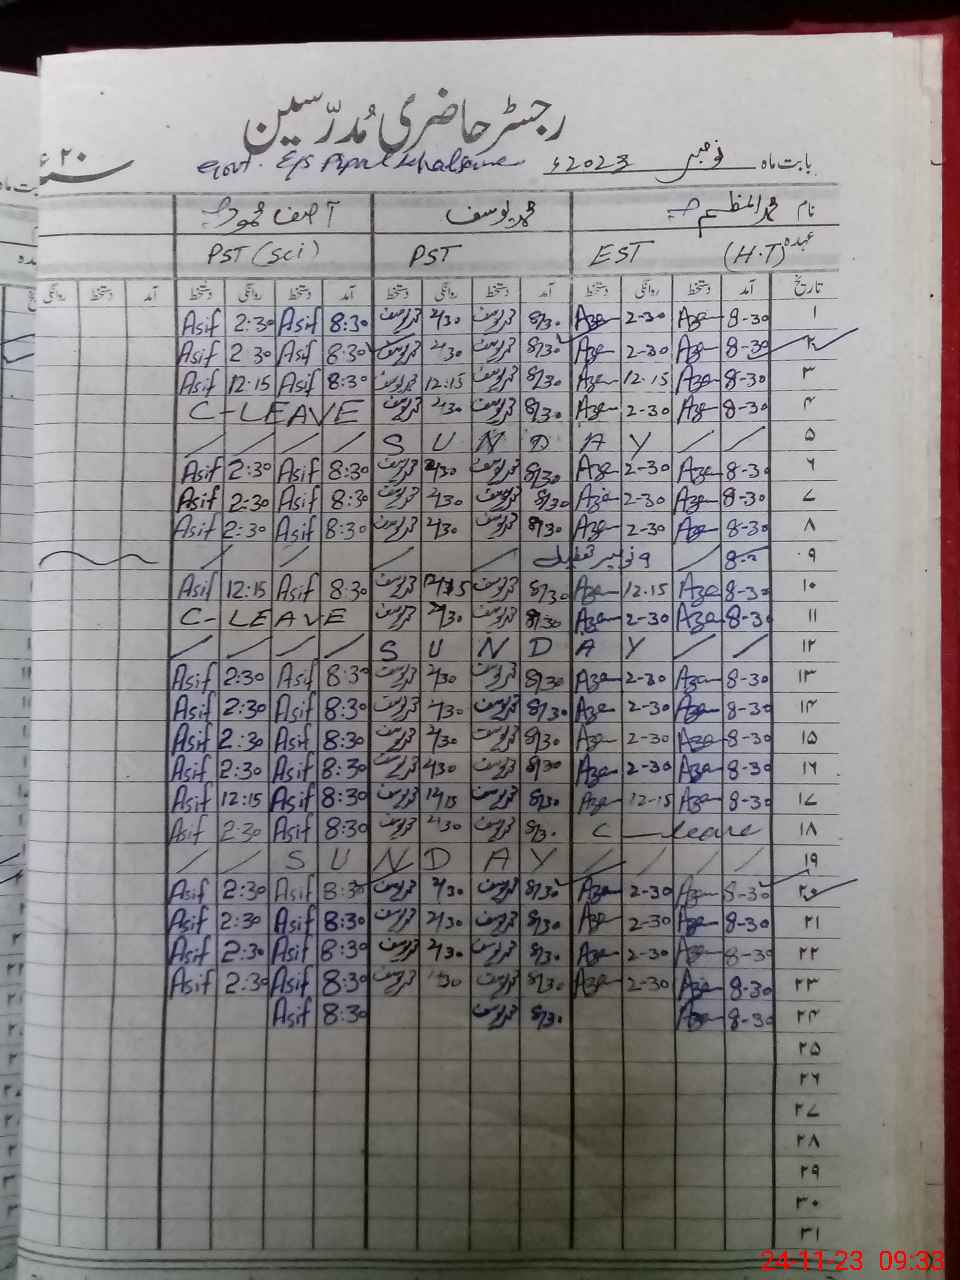 رجسٹر حاضری مُدرّسین
بابت ماہ نومبر 2023ء Govt. E/s
نام محمد اعظم محمد یوسف آصف محمود
عہدہ (H.T) EST PST PST (Sci)
تاریخ آمد دستخط روانگی دستخط آمد دستخط روانگی دستخط آمد دستخط روانگی دستخط آمد دستخط روانگی
۱ 8-30 Aze 2-30 Aze 8/30 محمد یوسف 2/30 محمد یوسف 8:30 Asif 2:30 Asif
۲ 8-30 Aze 2-30 Aze 8/30 محمد یوسف 2/30 محمد یوسف 8:30 Asif 2:30 Asif
۳ 8-30 Aze 12.15 Aze 8/30 محمد یوسف 12:15 محمد یوسف 8:30 Asif 12:15 Asif
۴ 8-30 Aze 2-30 Aze 8/30 محمد یوسف 2/30 محمد یوسف C-LEAVE
۵ SUNDAY
۶ 8-30 Aze 2-30 Aze 8/30 محمد یوسف 2/30 محمد یوسف 8:30 Asif 2:30 Asif
۷ 8-30 Aze 2-30 Aze 8/30 محمد یوسف 2/30 محمد یوسف 8:30 Asif 2:30 Asif
۸ 8-30 Aze 2-30 Aze 8/30 محمد یوسف 2/30 محمد یوسف 8:30 Asif 2:30 Asif
۰۹ ۹ نومبر تعطیل
۱۰ 8-30 Aze 12.15 Aze 8/30 محمد یوسف 12/15 محمد یوسف 8:30 Asif 12:15 Asif
۱۱ 8-30 Aze 2-30 Aze 8/30 محمد یوسف 2/30 محمد یوسف C-LEAVE
۱۲ SUNDAY
۱۳ 8-30 Aze 2-30 Aze 8/30 محمد یوسف 2/30 محمد یوسف 8:30 Asif 2:30 Asif
۱۴ 8-30 Aze 2-30 Aze 8/30 محمد یوسف 2/30 محمد یوسف 8:30 Asif 2:30 Asif
۱۵ 8-30 Aze 2-30 Aze 8/30 محمد یوسف 2/30 محمد یوسف 8:30 Asif 2:30 Asif
۱۶ 8-30 Aze 2-30 Aze 8/30 محمد یوسف 2/30 محمد یوسف 8:30 Asif 2:30 Asif
۱۷ 8-30 Aze 12-15 Aze 8/30 محمد یوسف 12/15 محمد یوسف 8:30 Asif 12:15 Asif
۱۸ C-leave 8/30 محمد یوسف 2/30 محمد یوسف 8:30 Asif 2:30 Asif
۱۹ SUNDAY
۲۰ 8-30 Aze 2-30 Aze 8/30 محمد یوسف 2/30 محمد یوسف 8:30 Asif 2:30 Asif
۲۱ 8-30 Aze 2-30 Aze 8/30 محمد یوسف 2/30 محمد یوسف 8:30 Asif 2:30 Asif
۲۲ 8-30 Aze 2-30 Aze 8/30 محمد یوسف 2/30 محمد یوسف 8:30 Asif 2:30 Asif
۲۳ 8-30 Aze 2-30 Aze 8/30 محمد یوسف 2/30 محمد یوسف 8:30 Asif 2:30 Asif
۲۴ 8-30 Aze 8/30 محمد یوسف 8:30 Asif
۲۵
۲۶
۲۷
۲۸
۲۹
۳۰
۳۱
24-11-23 09:33